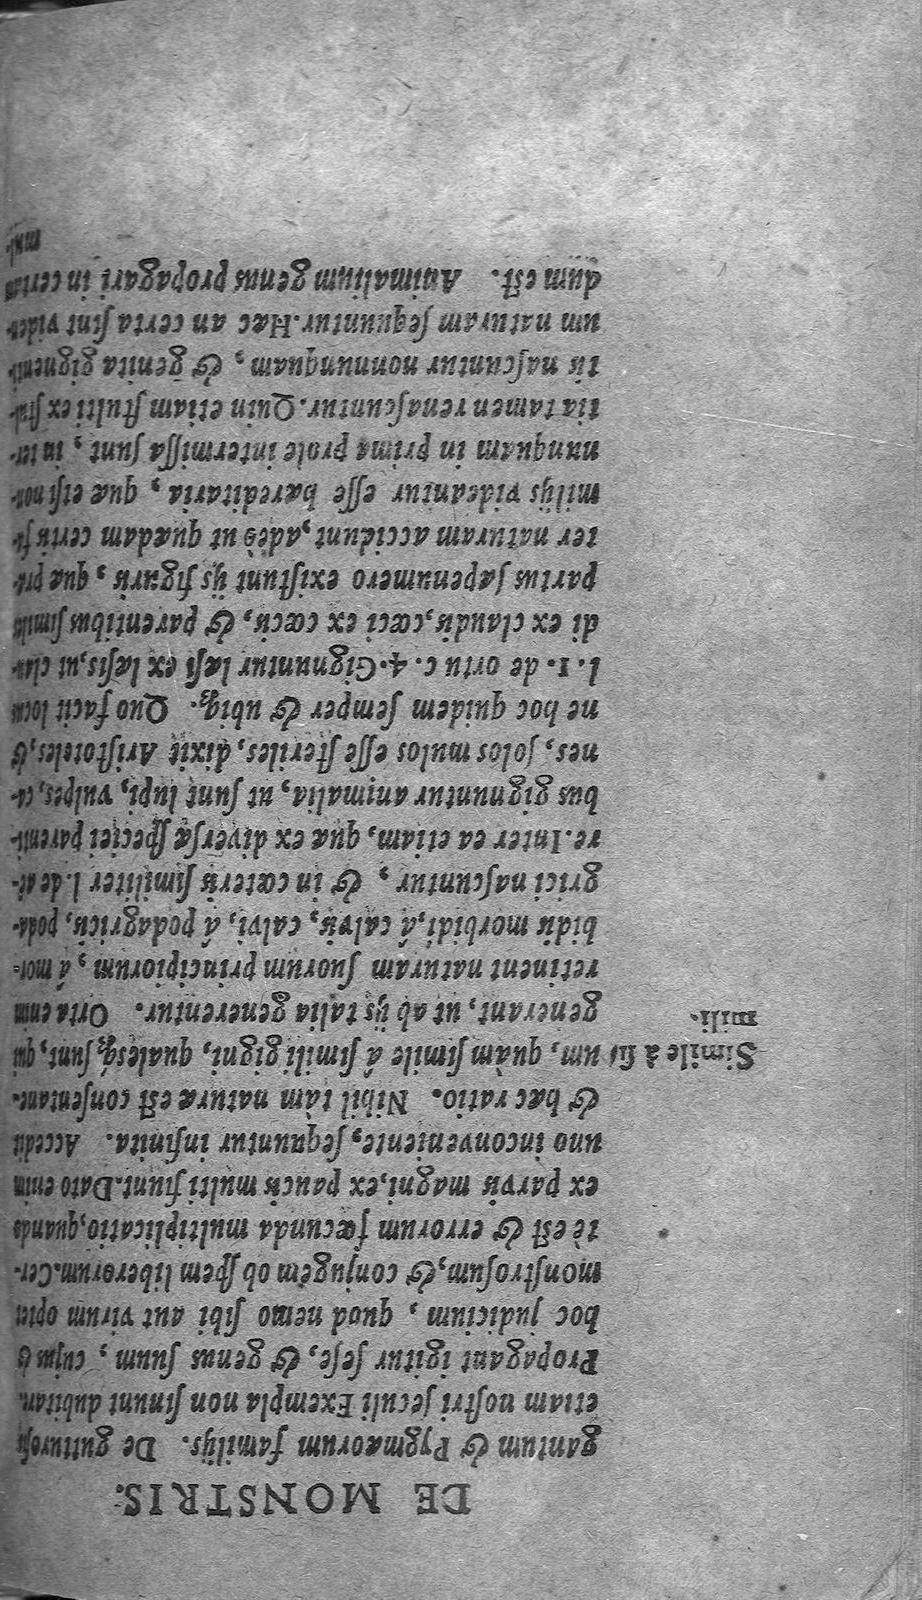 DE MONSTRIS.
gantum & Pygmæorum familijs. De gutturosis
etiam nostri seculi Exempla non sinunt dubitari.
Propagant igitur sese, & genus suum, cujus &
hoc judicium, quod nemo sibi aut virum optet
monstrosum, & conjugem ob spem liberorum. Cer-
tè est & errorum fœcunda multiplicatio, quando
ex parvis magni, ex paucis multi fiunt. Dato enim
uno inconveniente, sequuntur infinita. Accedit
& hæc ratio. Nihil tàm naturæ est consentane-
Simile à si
mili.
um, quàm simile á simili gigni, qualesq́; sunt, qui
generant, ut ab ijs talia generentur. Orta enim
retinent naturam suorum principiorum, á mor-
bidis morbidi, á calvis, calvi, á podagricis, poda-
grici nascuntur, & in cœteris similiter l. de aë-
re. Inter ea etiam, quæ ex diversæ speciei parenti-
bus gignuntur animalia, ut sunt lupi, vulpes, ca-
nes, solos mulos esse steriles, dixit Aristoteles, &
ne hoc quidem semper & ubiq;. Quo facit locus
l. 1. de ortu c. 4. Gignuntur læsi ex læsis, ut clau-
di ex claudis, cœci ex cœcis, & parentibus similis
partus sæpenumero existunt ijs figuris, quæ præ-
ter naturam accidunt, adeò ut quædam certis fa-
milijs videantur esse hæreditaria, quæ etsi non-
nunquam in prima prole intermissa sunt, in ter-
tia tamen renascuntur. Quin etiam stulti ex stul-
tis nascuntur nonnunquam, & genita gignenti-
um naturam sequuntur. Hæc an certa sint viden-
dum est. Animalium genus propagari in certam
mul-